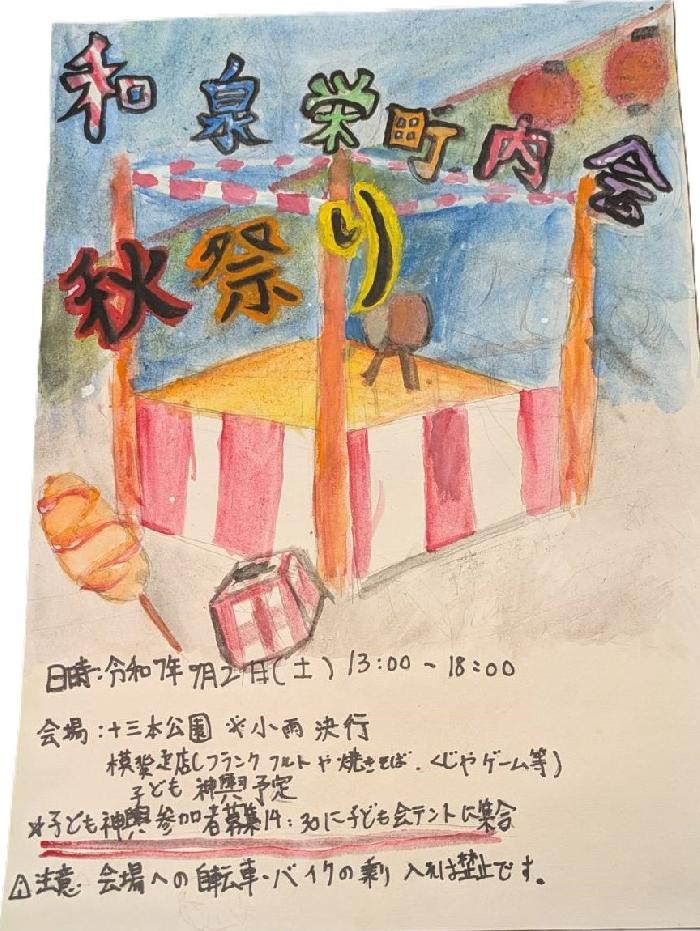 和泉栄町内会
秋祭り
日時:令和7年9月27日(土) 13:00~18:00
会場:十三本公園 ※小雨決行
模擬店(フランクフルトや焼きそば、くじやゲーム等)
子ども神輿予定
※子ども神輿参加者募集14:30に子ども会テントに集合
⚠注意 会場への自転車・バイクの乗り入れは禁止です。